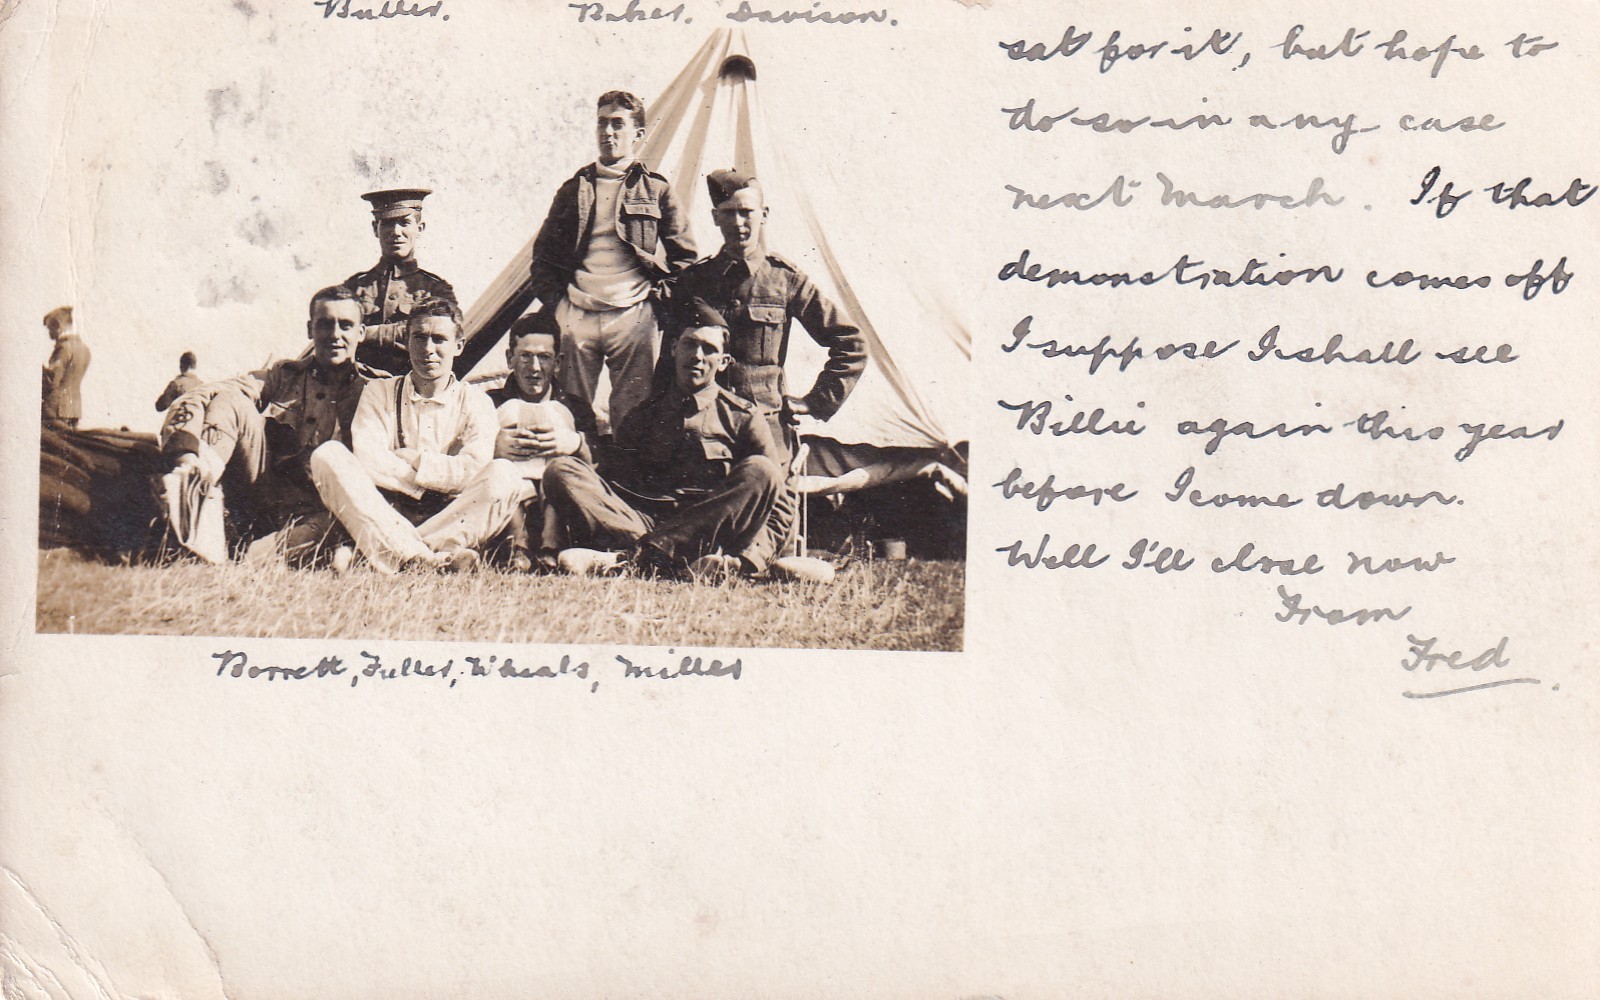 Buller. Baker. Davison.
Borrett, Fuller, Wheals, Miller
sat for it, but hope to
do so in any case
next March. If that
demonstration comes off
I suppose I shall see
Billie again this year
before I come down.
Well I'll close now
From
Fred